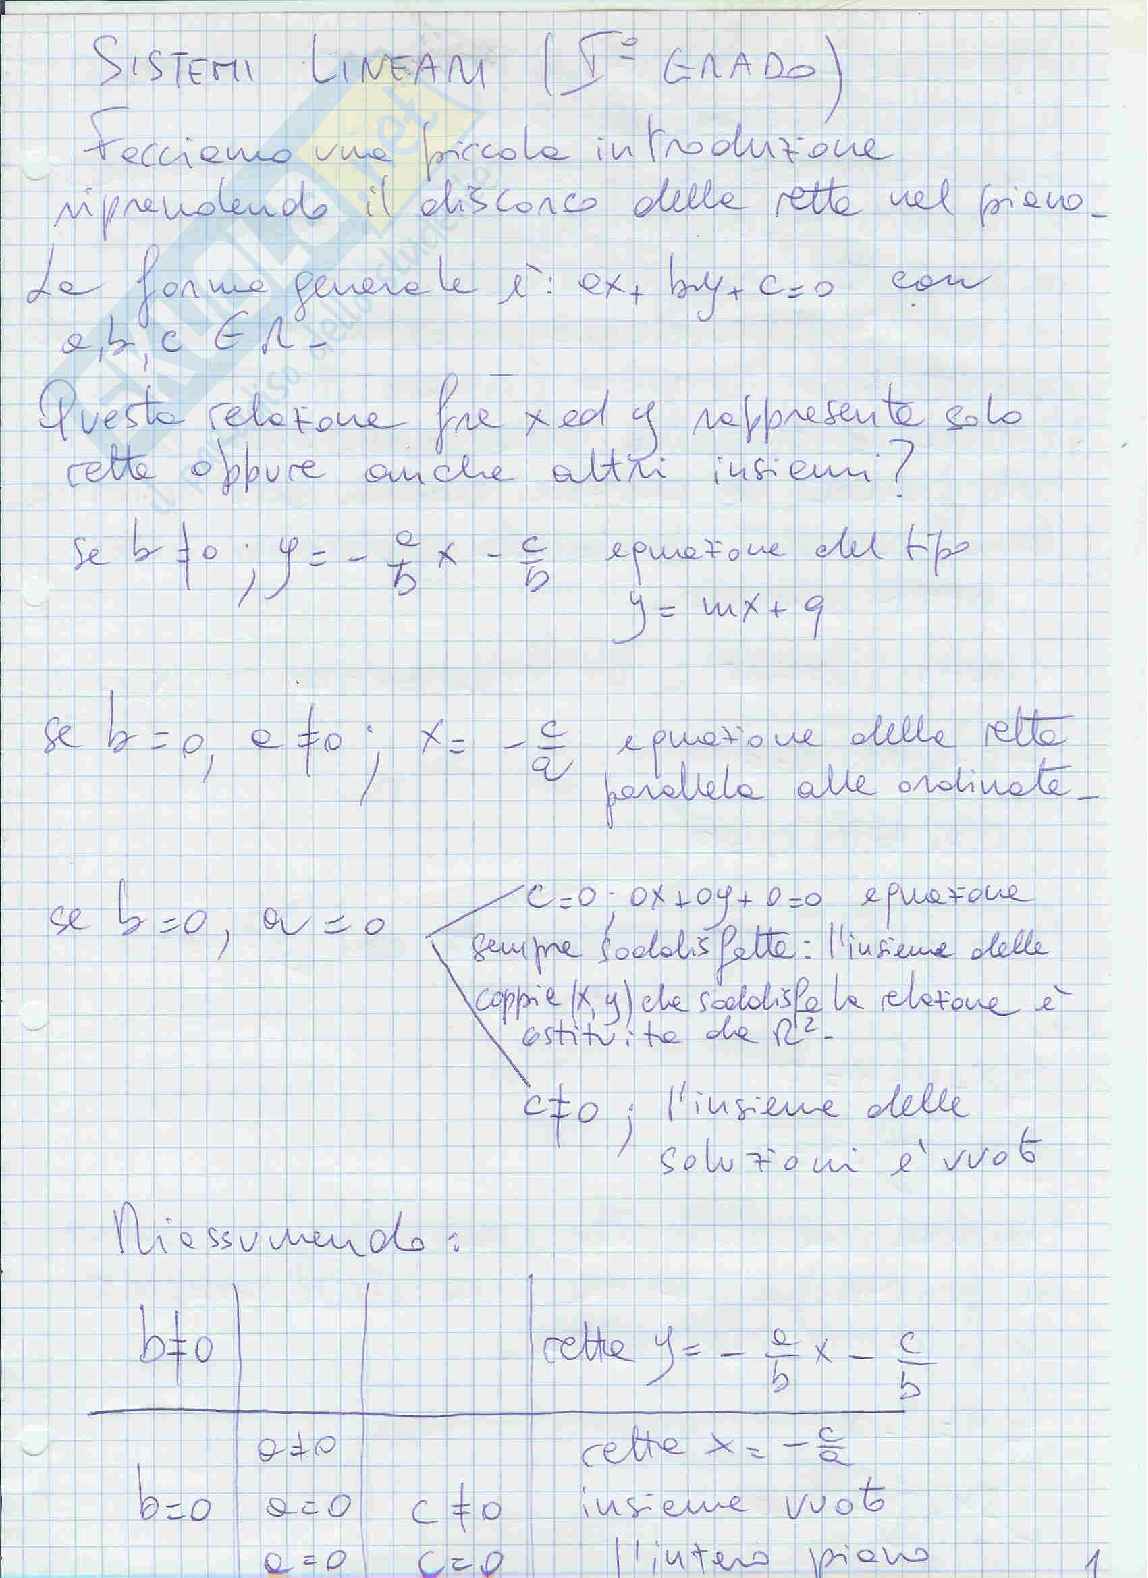 SISTEMI LINEARI (I° GRADO)
Facciamo una piccola introduzione
riprendendo il discorso della retta nel piano_
La forma generale è: ax+by+c=0 con
a,b,c ∈ R_
Questa relazione fra x ed y rappresenta solo
rette oppure anche altri insiemi?
se b≠0; y = -a/b x - c/b equazione del tipo
y = mx+q
se b=0, a≠0; x = -c/a equazione della retta
parallela alle ordinate_
se b=0, a=0
c=0; 0x+0y+0=0 equazione
sempre soddisfatta: l'insieme delle
coppie (x,y) che soddisfa la relazione è
costituita da R²_
c≠0; l'insieme delle
soluzioni è vuoto
Riassumendo:
b≠0 retta y = -a/b x - c/b
a≠0 retta x = -c/a
b=0 a=0 c≠0 insieme vuoto
a=0 c=0 l'intero piano
1
SKUOLA.net